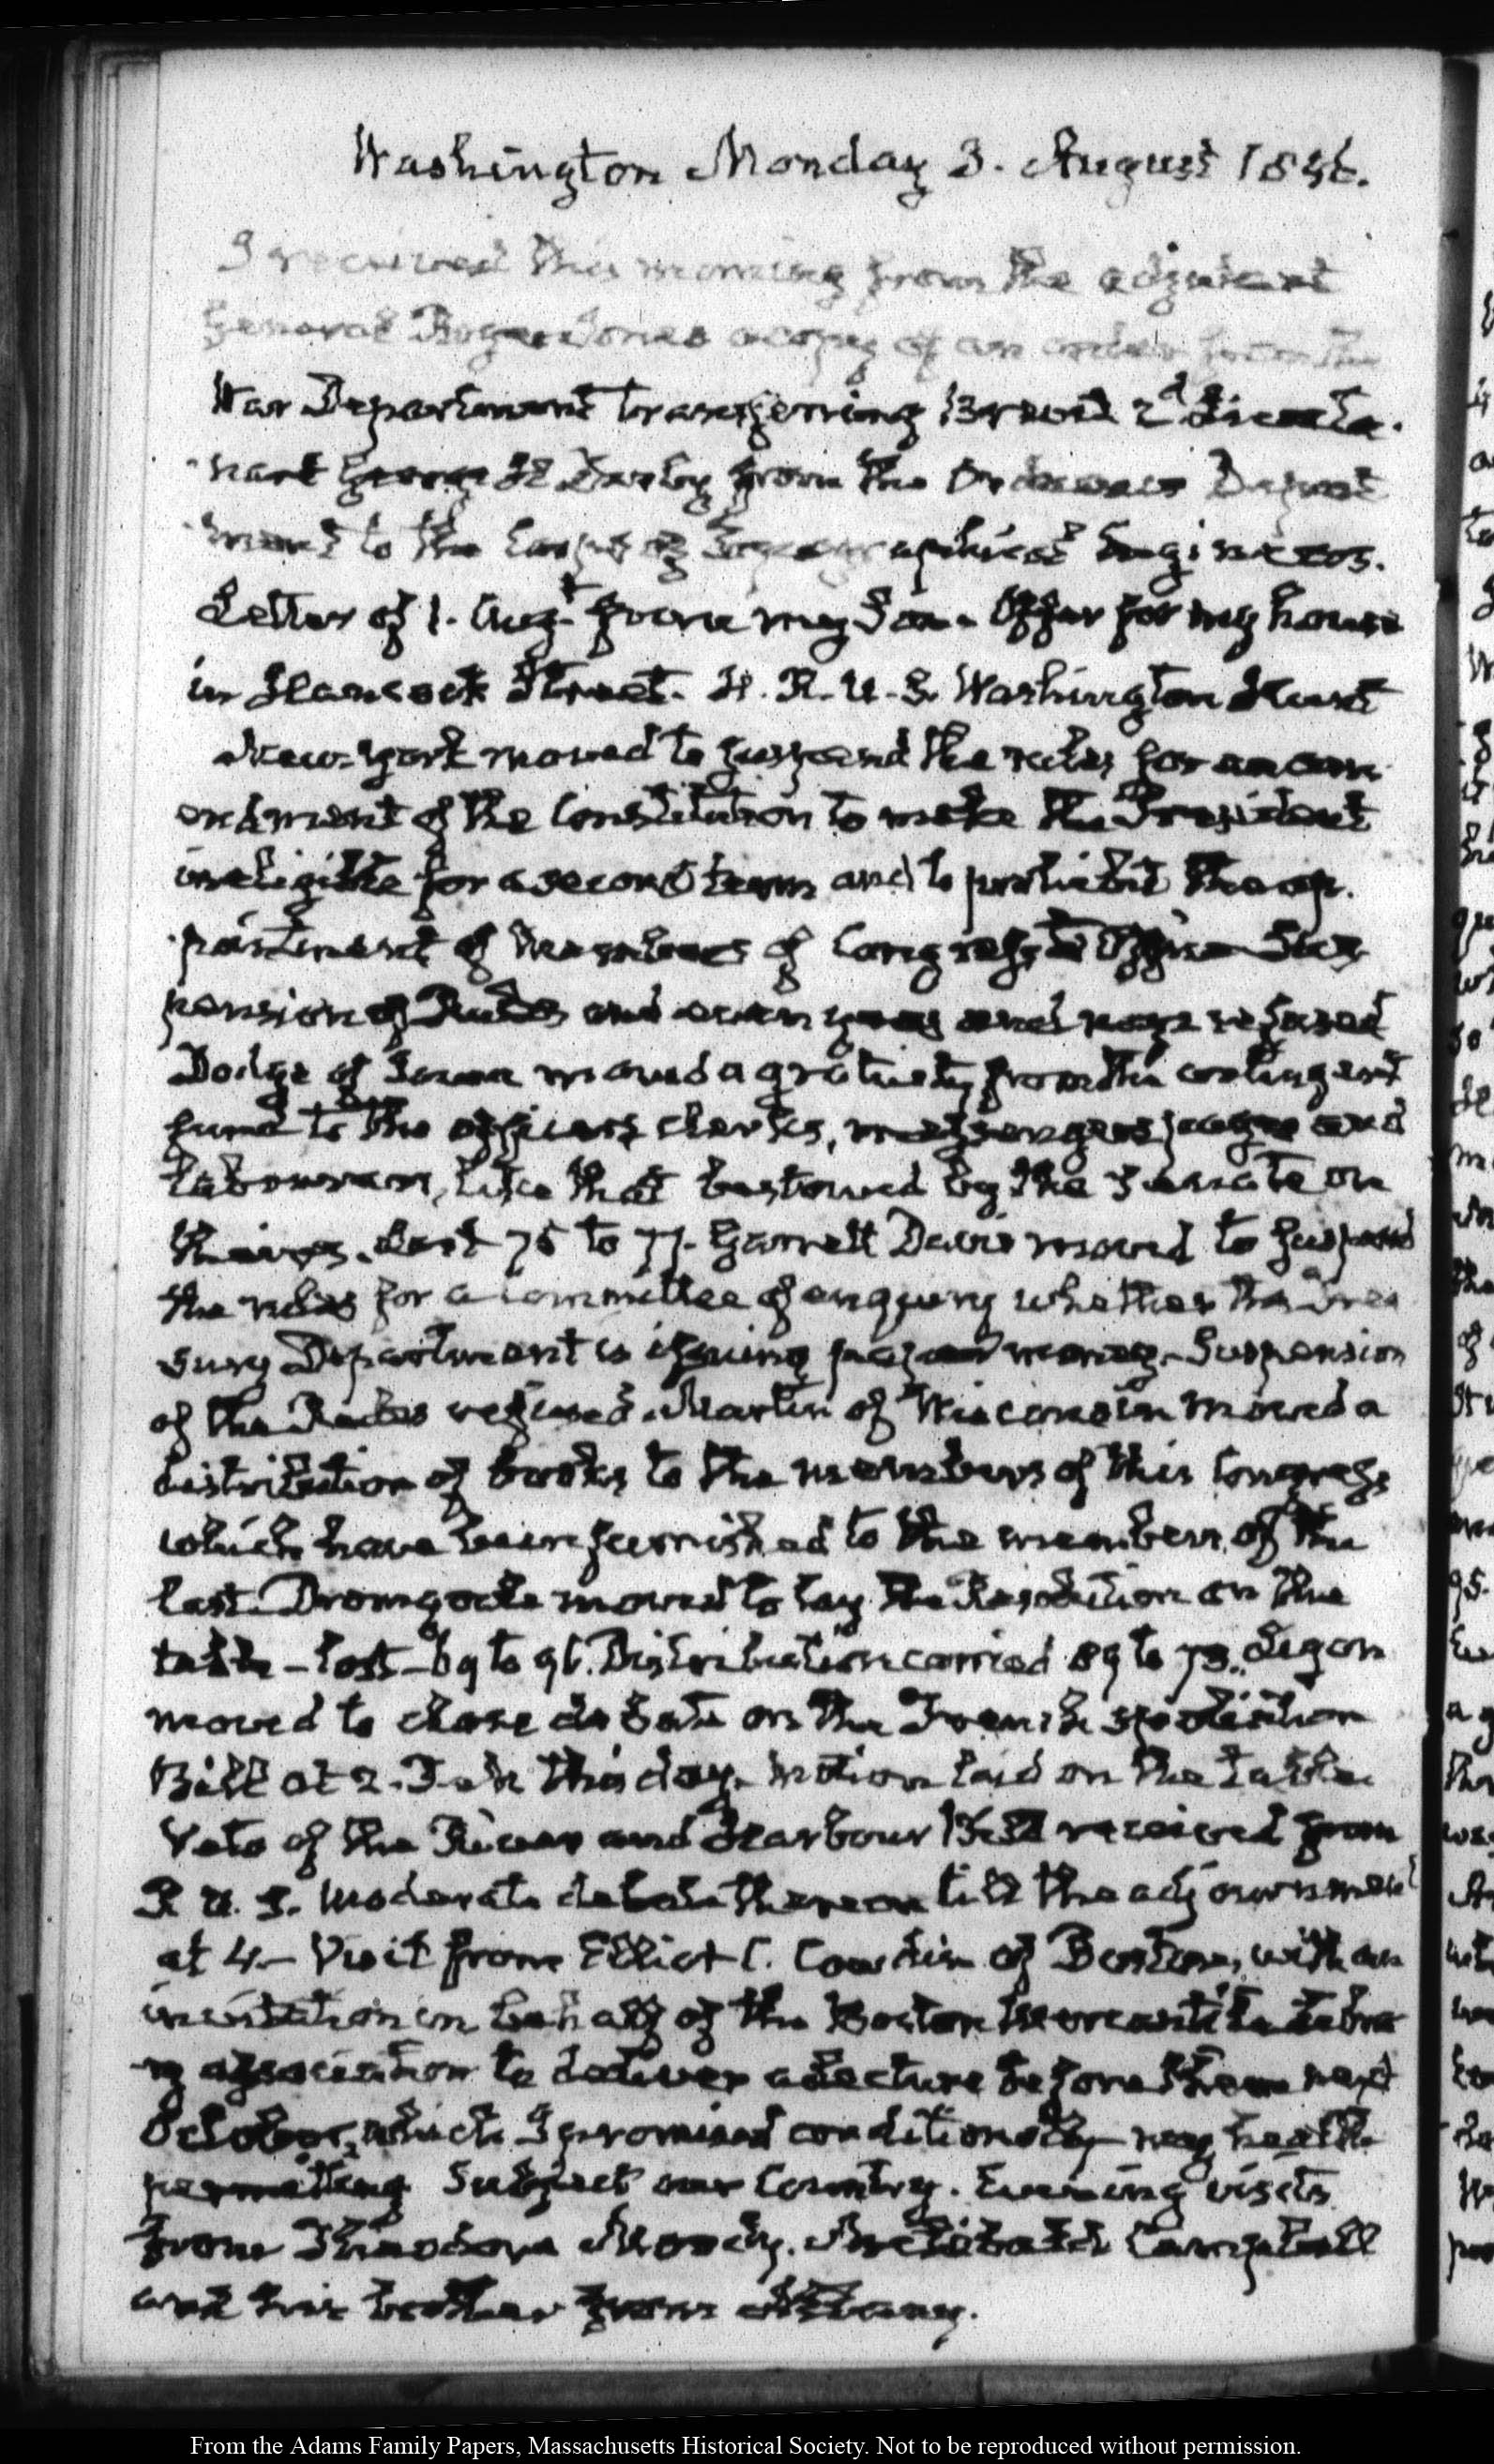 Washington Monday 3. August 1846.
I received this morning from the adjutant
General Roger Jones a copy of an order from the
War Department transferring Brevet 2d Lieute-
nant George H Derby from the Ordnance Depart
ment to the Corps of Topographical Engineers.
Letter of 1. Augt from my Son. Offer for my house
in Hancock Street. H. R. U. S. Washington Hunt
New-York moved to suspend the rules for an am
endment of the Constitution to make the President
ineligible for a second term and to prohibit the ap-
pointment of members of Congress to Office Sus
pension of Rules and even yeas and nays refused
Dodge of Iowa moved a gratuity from the contingent
fund to the officers clerks, messengers pages and
labourers, like that bestowed by the Senate on
theirs. lost 75 to 77. Garrett Davis moved to suspend
the rules for a committee of enquiry whether the Trea
sury Department is issuing paper money. Suspension
of the Rules refused. Martin of Wisconsin moved a
distribution of books to the members of this Congress
which have been furnished to the members of the
last. Dromgoole moved to lay the Resolution on the
table – lost – 69 to 96. Distribution carried 89 to 73. Ligon
moved to close debate on the French spoliation
Bill at 2. Feh this day. motion laid on the table.
Veto of the River and Harbour Bill received from
P. U. S. Moderate debate thereon till the adjournment
at 4 – Visit from Elliot C. Cowdin of Boston, with an
invitation in behalf of the Boston Mercantile Libra
ry association to deliver a lecture before them next
October, which I promised conditionally my health
permitting Subject our Country. Evening visits
from Theodore Moody. Archibald Campbell
and his brother from Albany.
From the Adams Family Papers, Massachusetts Historical Society. Not to be reproduced without permission.